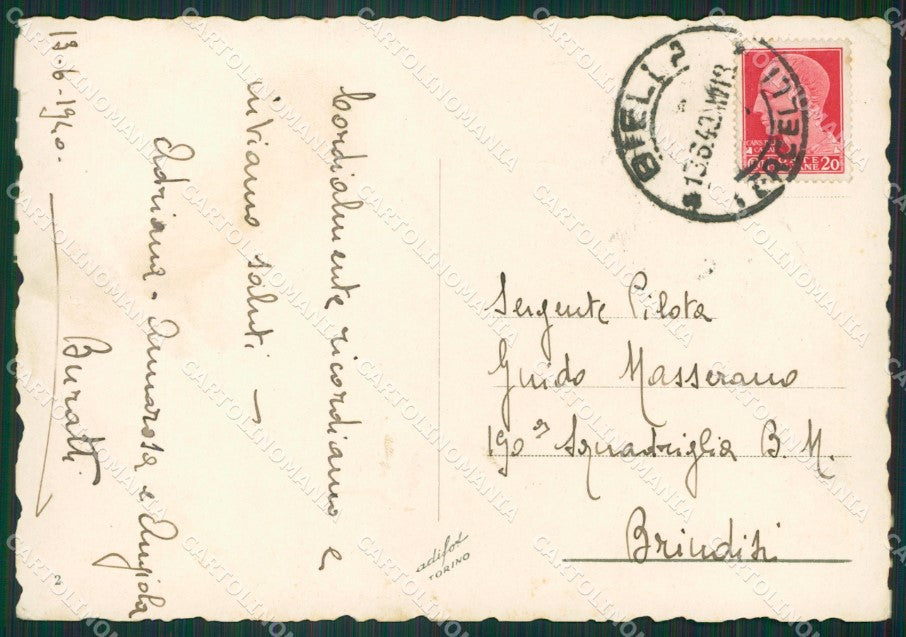 13-6-1940.
Cordialmente ricordiamo e
inviamo saluti —
Adriana - Annarosa e Angiola
Buratti
Sergente Pilota
Guido Masserano
190ª Squadriglia B. M.
Brindisi
adifot
TORINO
2
20
CARTOLINOMANIA